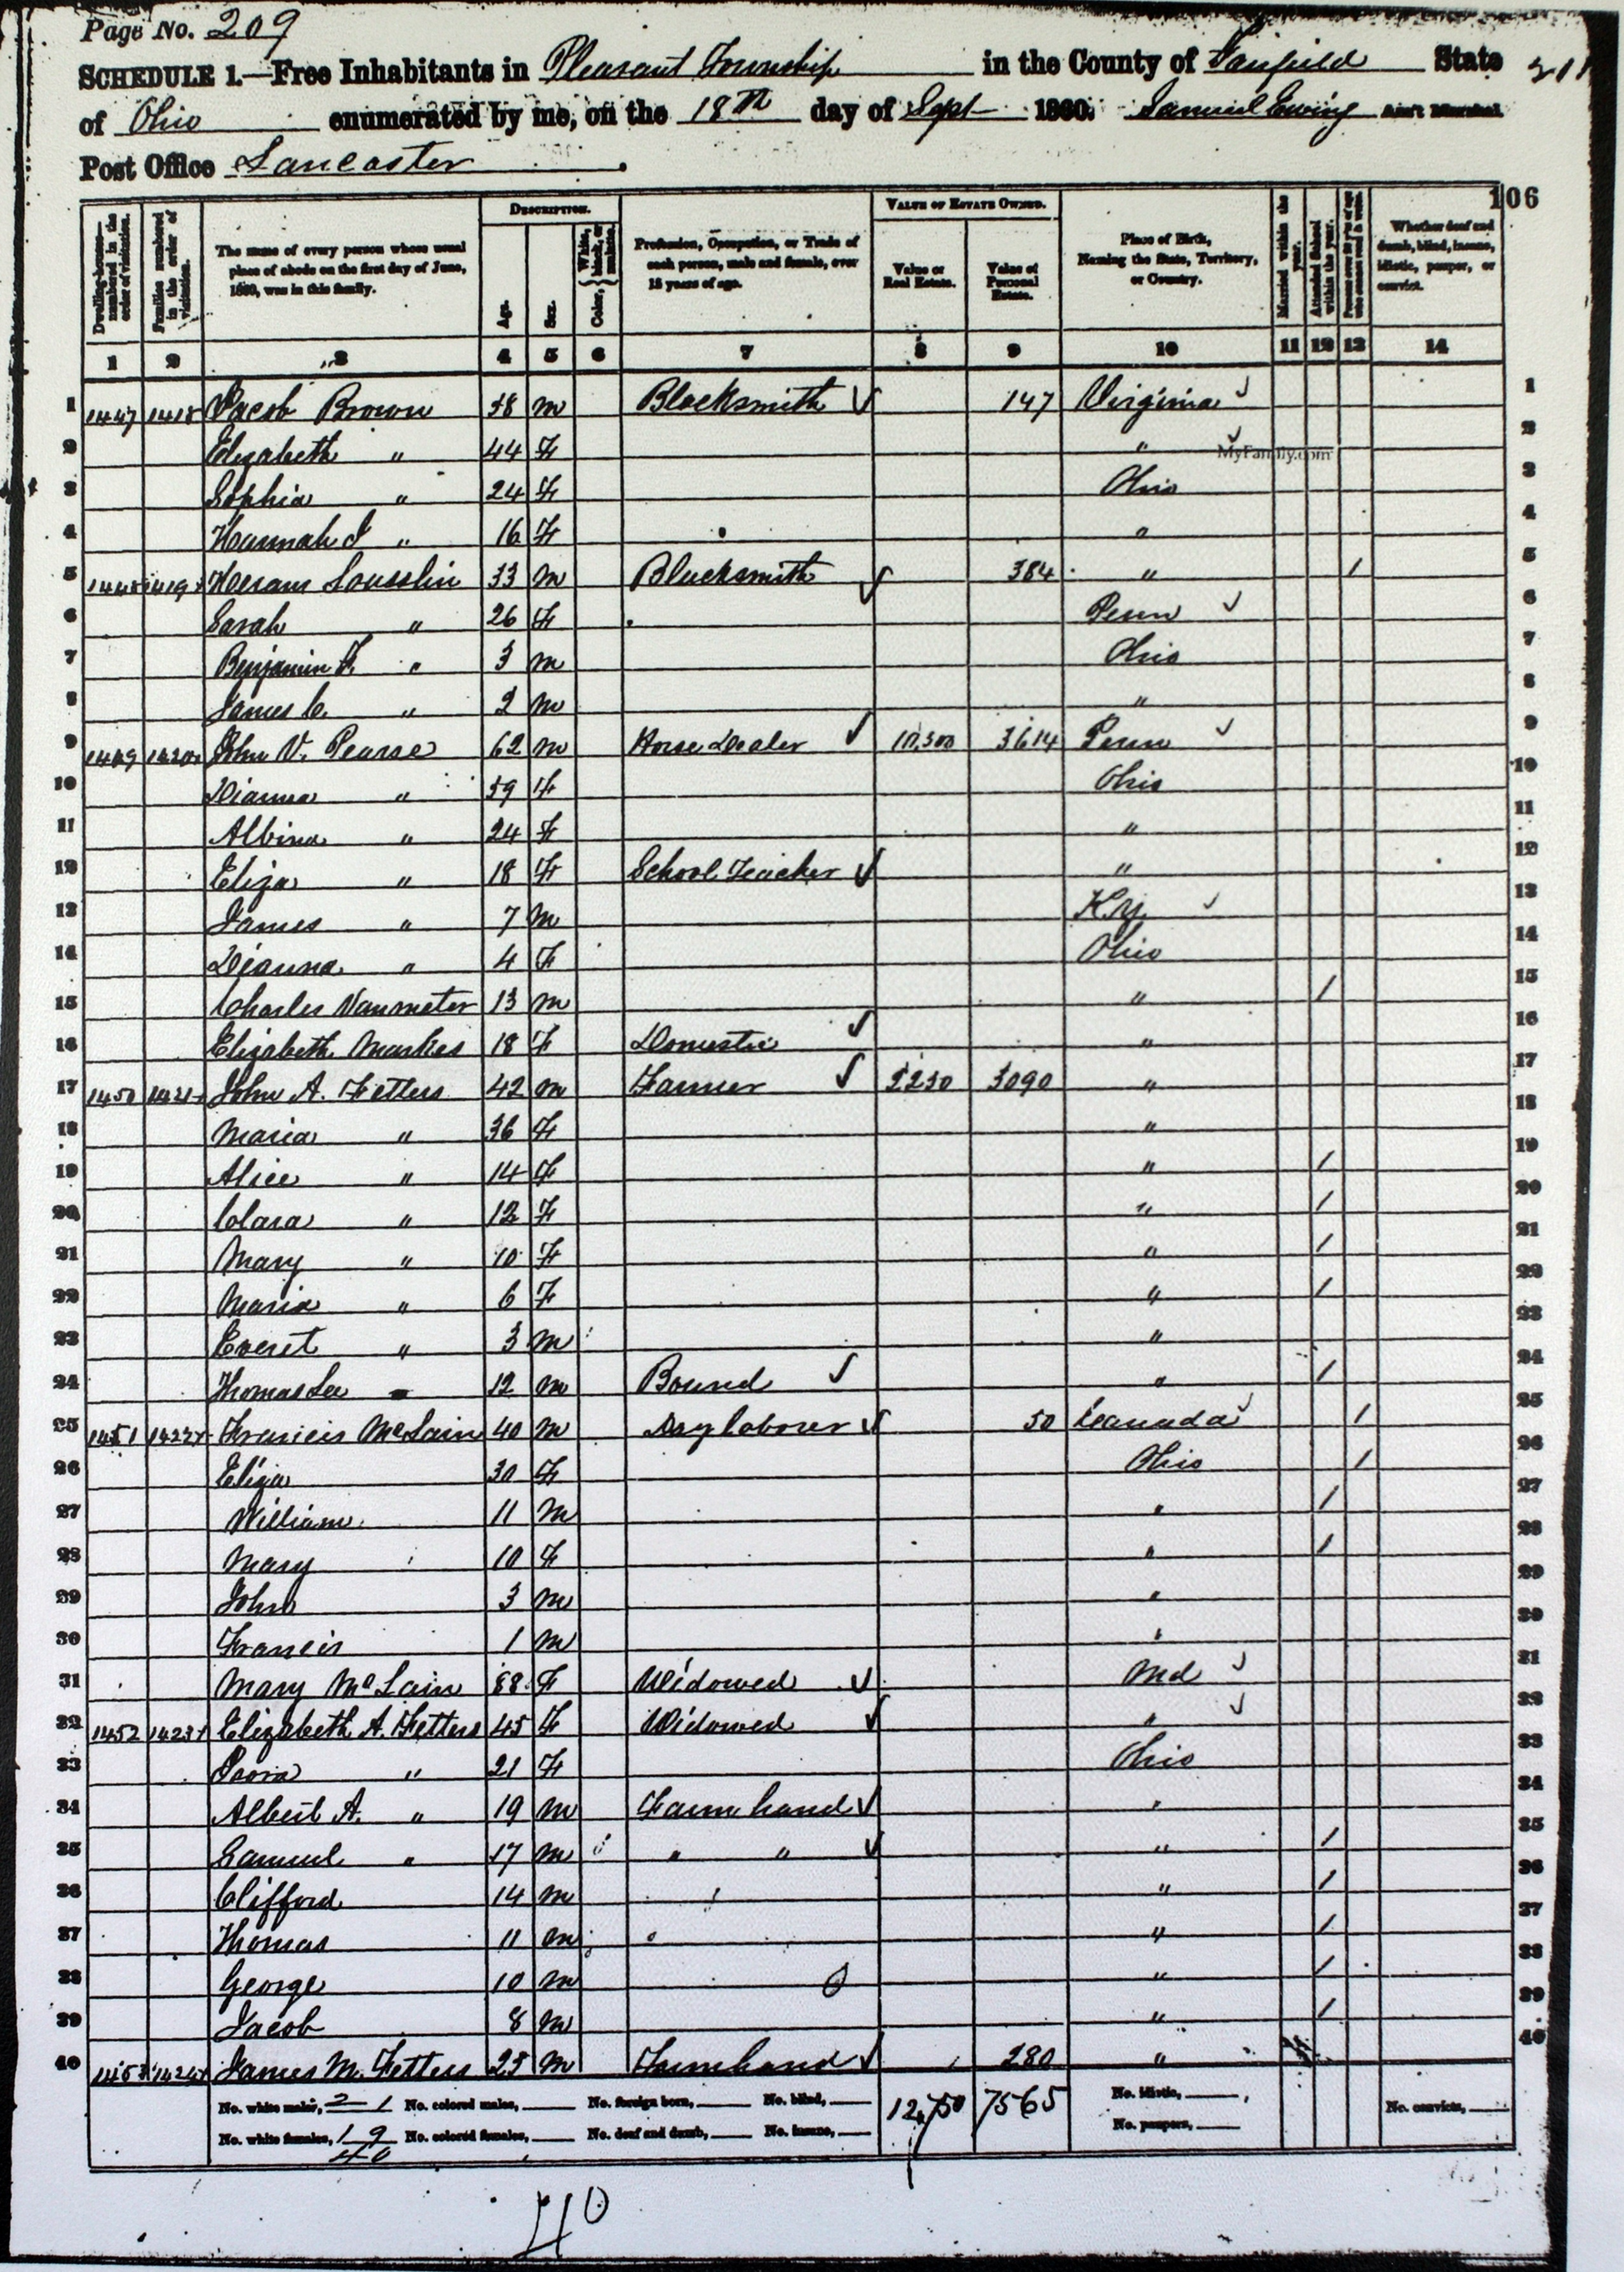 Page No. 209
SCHEDULE 1.—Free Inhabitants in Pleasant Township in the County of Fairfield State
of Ohio enumerated by me, on the 18th day of Sept 1860. Samuel Ewing Ass't Marshal.
Post Office Lancaster
106
Dwelling-houses—numbered in the order of visitation.
Families numbered in the order of visitation.
The name of every person whose usual place of abode on the first day of June, 1860, was in this family.
DESCRIPTION.
Age.
Sex.
Color, { White, black, or mulatto.
Profession, Occupation, or Trade of each person, male and female, over 15 years of age.
VALUE OF ESTATE OWNED.
Value of Real Estate.
Value of Personal Estate.
Place of Birth, Naming the State, Territory, or Country.
Married within the year.
Attended School within the year.
Whether deaf and dumb, blind, insane, idiotic, pauper, or convict.
1 2 3 4 5 6 7 8 9 10 11 12 13 14
1 1447 1418 Jacob Brown 48 m Blacksmith 147 Virginia 1
2 Elizabeth " 44 F " 2
MyFamily.com
3 Sophia " 24 F Ohio 3
4 Hannah J " 16 F " 4
5 1448 1419 33 m Blacksmith 384 " / 5
6 Sarah " 26 F Penn 6
7 Benjamin F. " 3 m Ohio 7
8 James C. " 2 m " 8
9 1449 1420 John V. Pearse 62 m Horse Dealer 10,500 3614 Penn 9
10 Dianna " 59 F Ohio 10
11 Albina " 24 F " 11
12 Eliza " 18 F School Teacher " 12
13 James " 7 m K.y. 13
14 Dianna " 4 F Ohio 14
15 Charles Vanmeter 13 m " / 15
16 Elizabeth Markes 18 F Domestic " 16
17 1450 1421 John A. Fetters 42 m Farmer 2250 3090 " 17
18 Maria " 36 F " 18
19 Alice " 14 F " / 19
20 Clara " 12 F " / 20
21 Mary " 10 F " / 21
22 Maria " 6 F " / 22
23 Everet " 3 m " 23
24 Thomas Lee 12 m Bound " / 24
25 1451 1422 Francis McLain 40 m Day laborer 50 Canada / 25
26 Eliza 30 F Ohio / 26
27 William 11 m " / 27
28 Mary 10 F " / 28
29 John 3 m " 29
30 Francis 1 m " 30
31 Mary McLain 88 F Widowed Md 31
32 1452 1423 Elizabeth A. Fetters 45 F Widowed " 32
33 " 21 F Ohio 33
34 Albert A. " 19 m Farm hand " 34
35 Samuel " 17 m " " " / 35
36 Clifford 14 m " / 36
37 Thomas 11 m " / 37
38 George 10 m " / 38
39 Jacob 8 m " / 39
40 1453 1424 James M. Fetters 25 m Farmhand 280 " 40
No. white males, 21 No. colored males, No. foreign born, No. blind, 12,750 7565 No. idiotic, No. convicts,
No. white females, 19 No. colored females, No. deaf and dumb, No. insane, No. paupers,
40
40